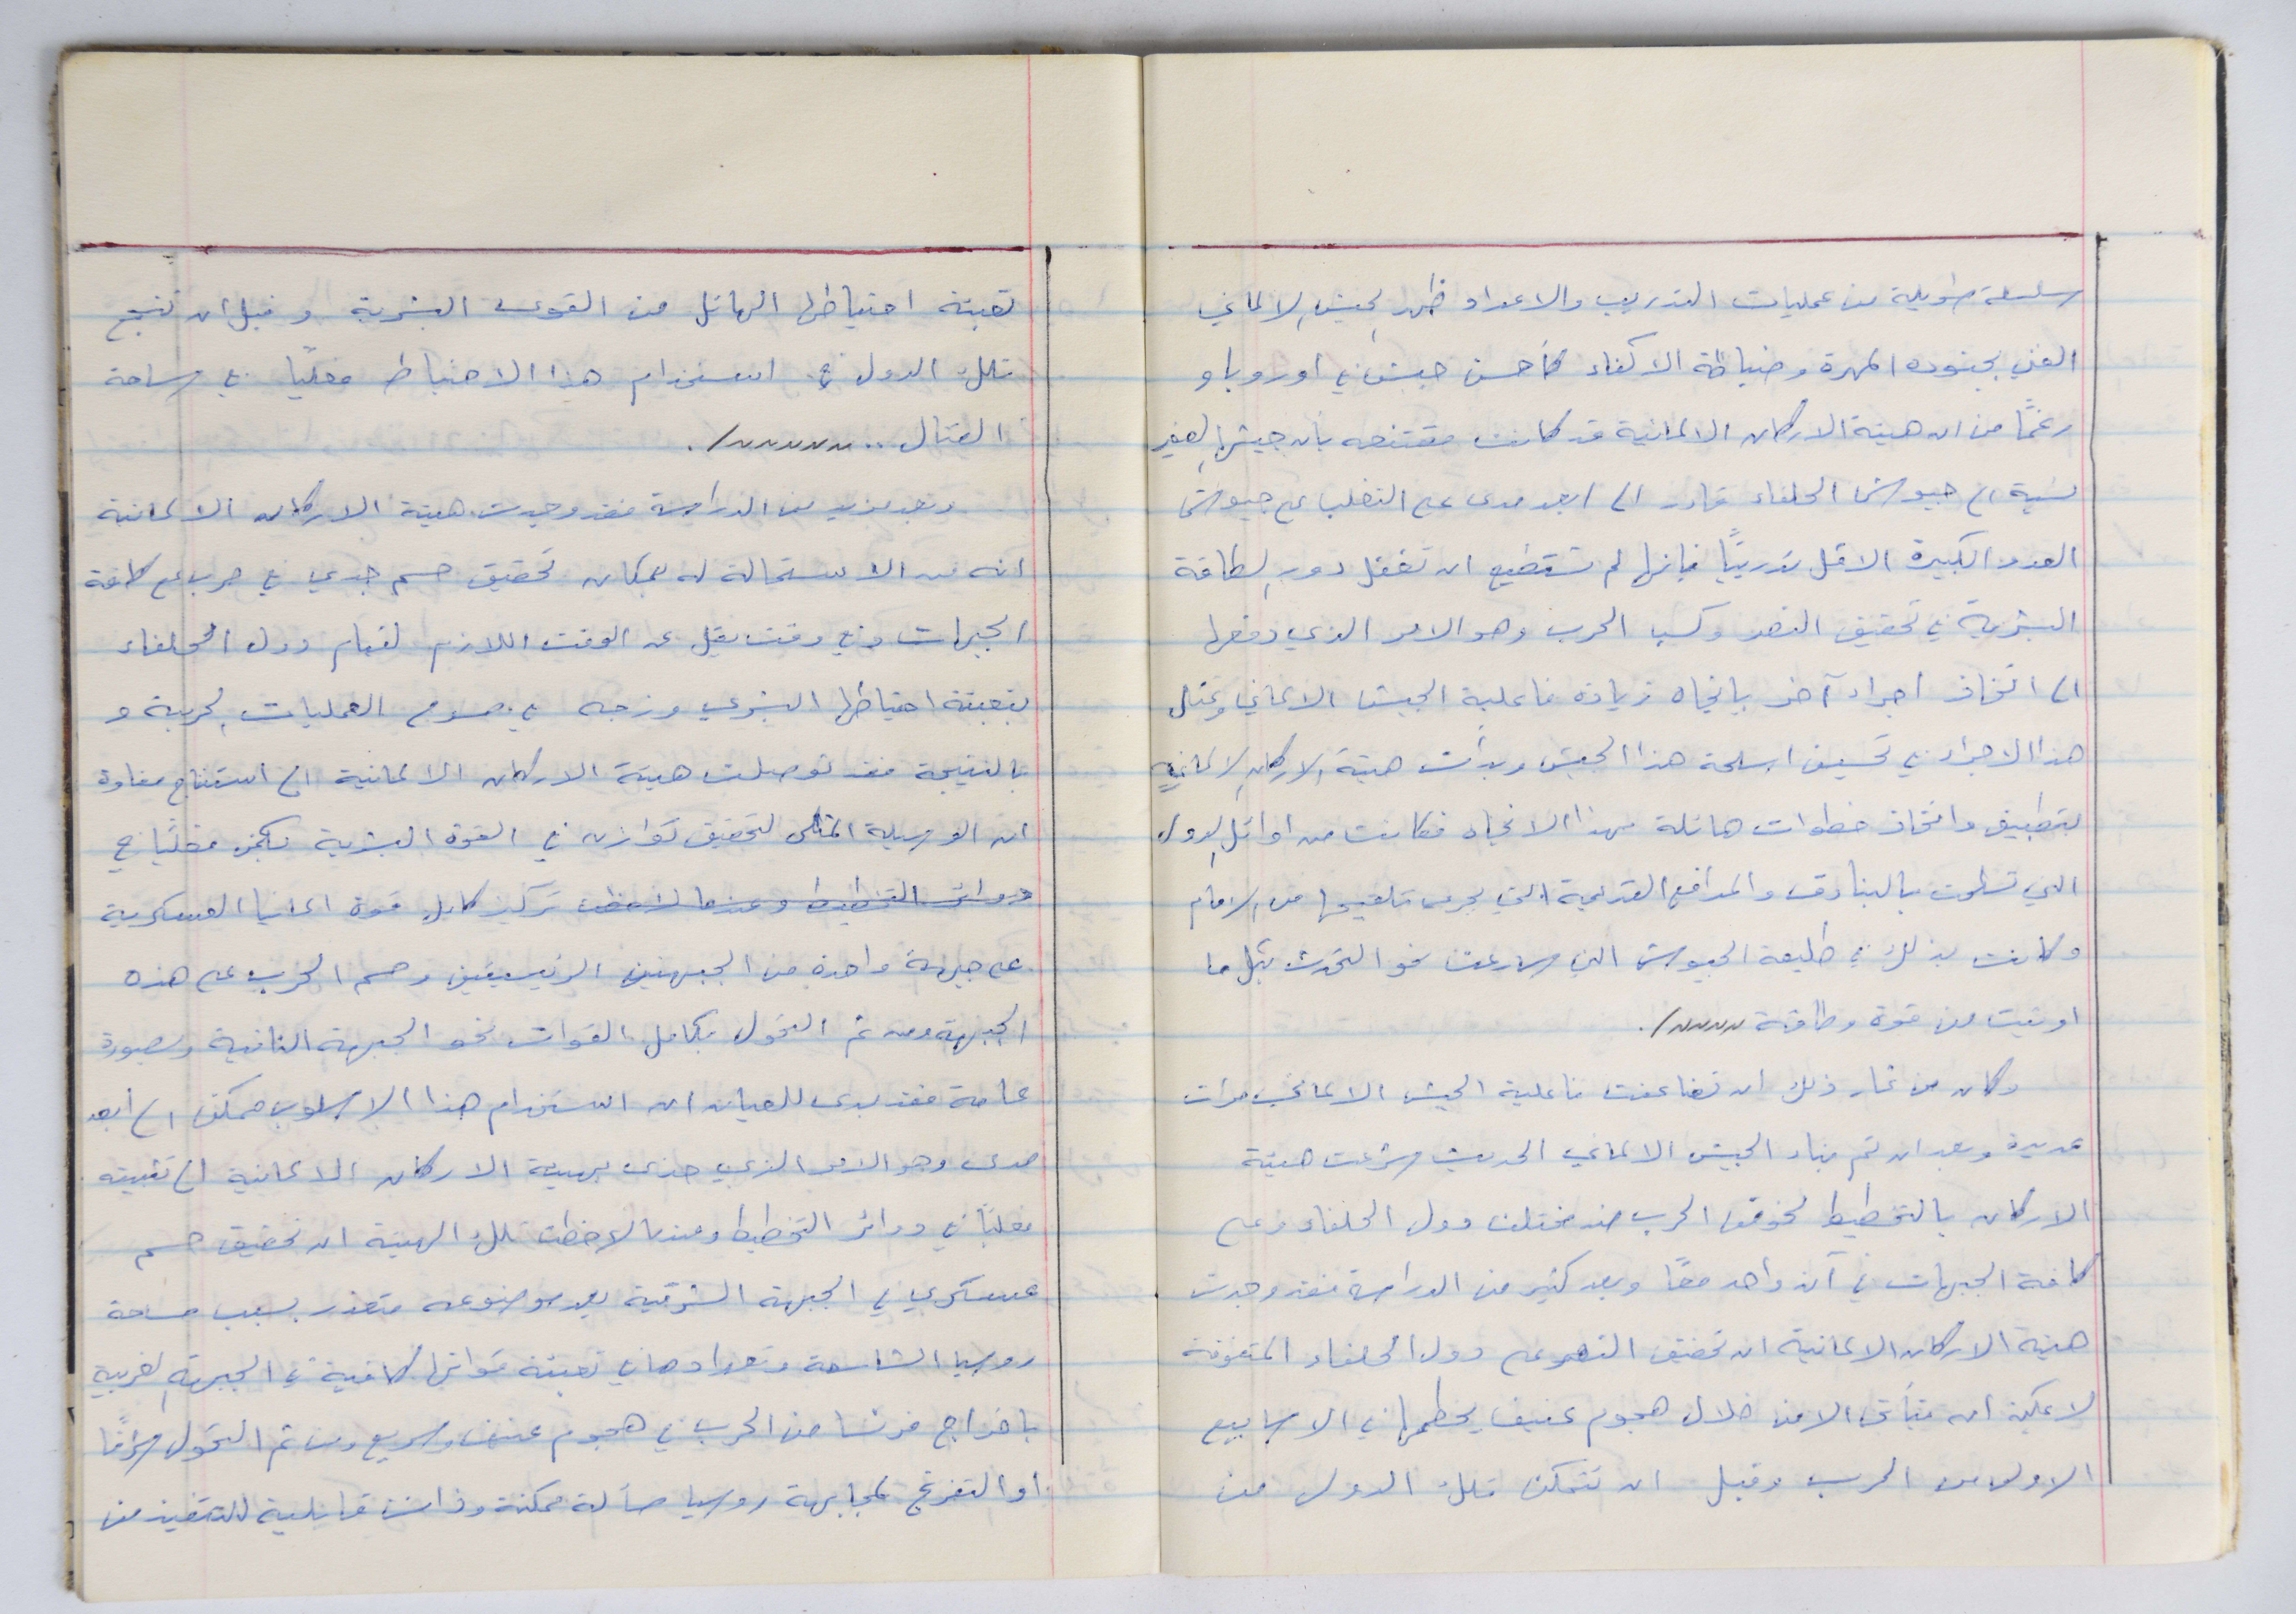 سلسلة طويلة من عمليات التدريب والاعداد ظهر الجيش الالماني
الفني بجنوده المهرة وضباطه الاكفاء كأحسن جيش في اوروبا و
رغمًا من ان هيئة الاركان الالمانية قد كانت مقتنعه بان جيشها الصغير
نسبة الى جيوش الحلفاء قادر الى ابعد مدى على التغلب على جيوش
العدو الكبيرة الاقل تدريبًا فإنها لم تستطيع ان تغفل دور الطاقة
البشرية في تحقيق النصر وكسب الحرب وهو الامر الذي دفعها
الى اتخاذ اجراء آخر باتجاه زيادة فاعلية الجيش الالماني وتمثل
هذا الاجراء في تحسين اسلحة هذا الجيش وبدأت هيئة الاركان الالمانية
بتطبيق واتخاذ خطوات هائلة بهذا الاتجاه فكانت من اوائل الدول
التي تسلحت بالبنادق والمدافع القديمة التي يجري تلقيمها من الامام
وكانت بذلك في طليعة الجيوش التي سارعت نحو التحدث بكل ما
اوتيت من قوة وطاقة /.
وكان من ثمار ذلك ان تضاعفت فاعلية الجيش الالماني مرات
عديدة وبعد ان تم بناء الجيش الالماني الحديث شرعت هيئة
الاركان بالتخطيط لخوض الحرب ضد مختلف دول الحلفاء وعلى
كافة الجبهات في آن واحد معًا وبعد كثير من الدراسة فقد وجدت
هيئة الاركان الالمانية ان تحقيق النصر على دول الحلفاء المتفوقة
لا يمكنه ان يتأتى الا من خلال هجوم عنيف يحطمها في الاسابيع
الاولى من الحرب وقبل ان تتمكن تلك الدول من
تعبئة احتياطها الهائل من القوى البشرية وقبل ان تنجح
تلك الدول في استخدام هذا الاحتياط فعليًا في ساحة
القتال .. /.
وبعد مزيد من الدراسة فقد وجدت هيئة الاركان الالمانية
انه من الاستحالة له بمكان تحقيق حسم جدي في حرب على كافة
الجبهات وفي وقت يقل عن الوقت اللازم لقيام دول الحلفاء
بتعبئة احتياطها البشري وزجه في العمليات الحربية و
بالنتيجة فقد توصلت هيئة الاركان الالمانية الى استنتاج مفاده
ان الوسيلة المثلى لتحقيق توازن في القوة البشرية يكمن فعليًا في
دوائر التخطيط وعندما لاحظت تركيز كامل قوة المانيا العسكرية
على جبهة واحدة من الجبهتين الرئيسيتين وحسم الحرب على هذه
الجبهة ومن ثم التحول بكامل القوات نحو الجبهة الثانية وبصورة
عامة فقد بدى للعيان ان استخدام هذا الاسلوب ممكن الى ابعد
مدى وهو الامر الذي حدى بهيئة الاركان الالمانية الى تثبيته
فعليًا في دوائر التخطيط وعندما لاحظت تلك الهيئة ان تحقيق حسم
عسكري في الجبهة الشرقية يعد موضوعه متعذر بسبب مساحة
روسيا الشاسعة وتعدادها في تعبئة قواتها كافية في الجبهة الغربية
باخراج فرنسا من الحرب في هجوم عنيف وسريع ومن ثم التحول شرقًا
او التفرغ لمجابهة روسيا مسألة ممكنة وذات قابلية للتنفيذ من